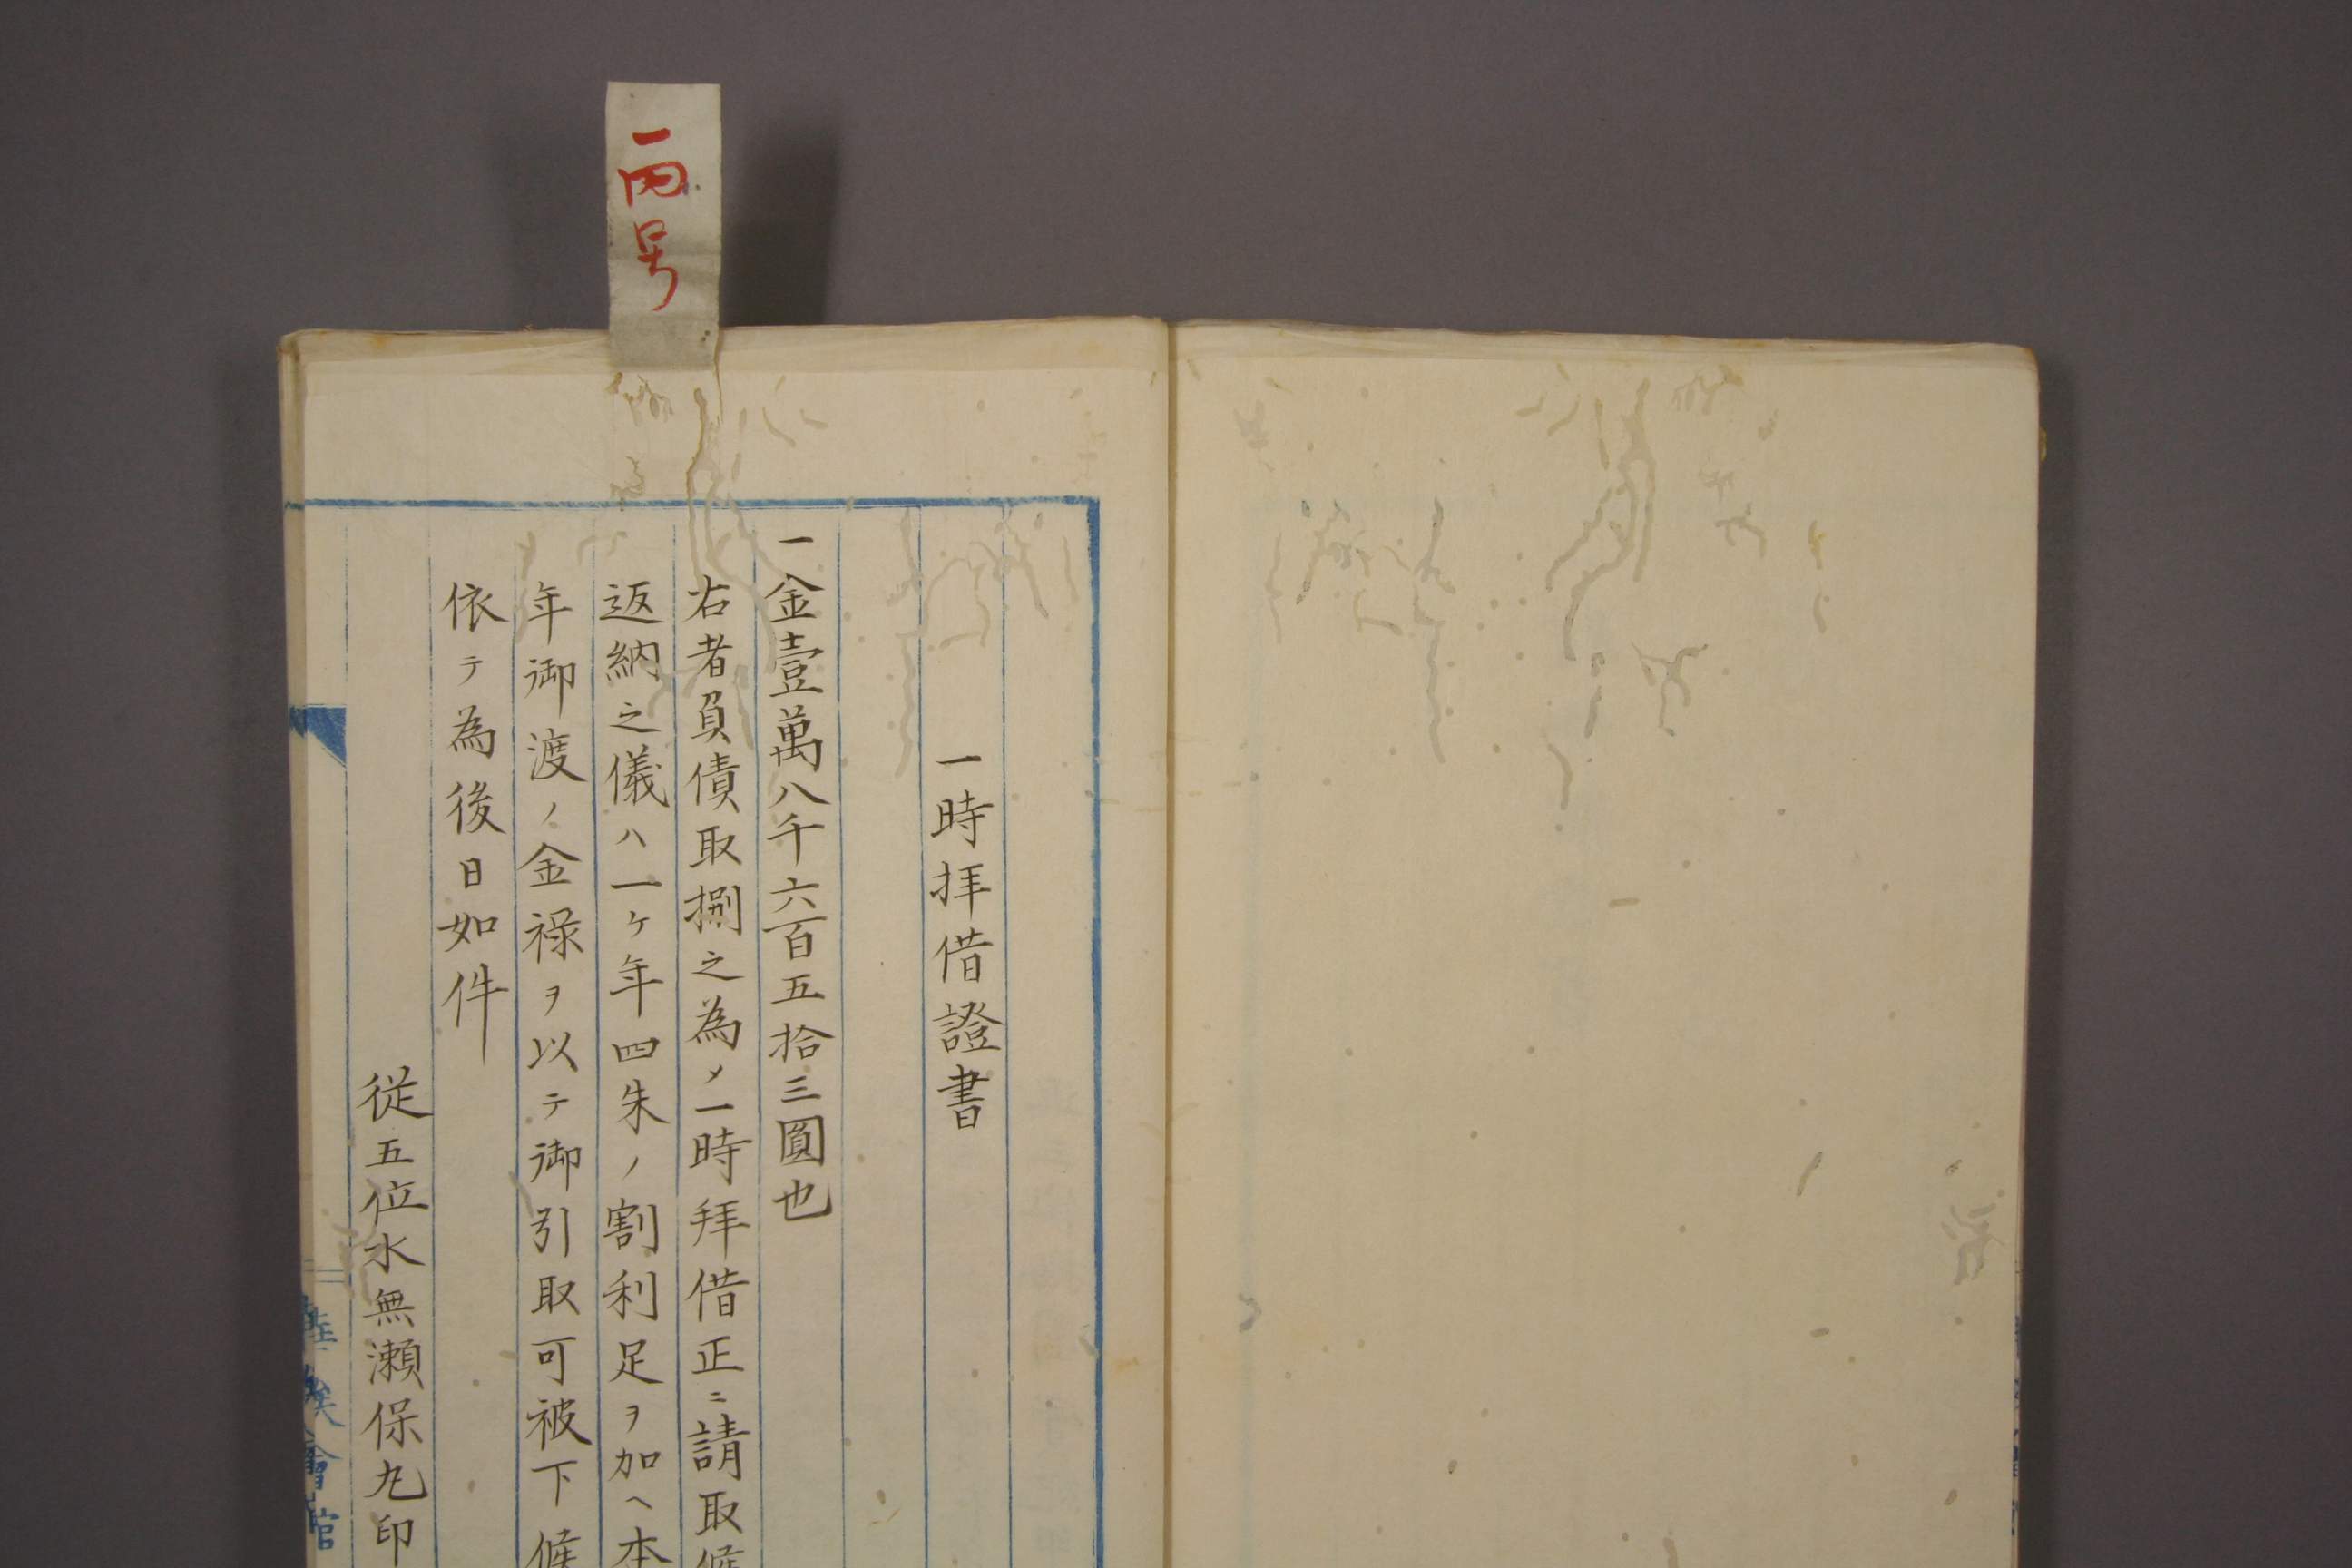 丙号
一時拝借證書
一金壹萬八千六百五拾三圓也
右者負債取捌之為メ一時拝借正ニ請取候
返納之儀ハ一ケ年四朱ノ割利足ヲ加ヘ本
年御渡ノ金禄ヲ以テ御引取可被下候
依テ為後日如件
従五位水無瀬保丸印
華族會館